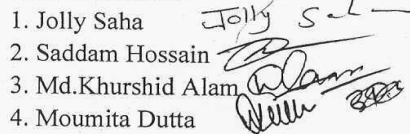 1. Jolly Saha Jolly Saha
2. Saddam Hossain
3. Md.Khurshid Alam
4. Moumita Dutta